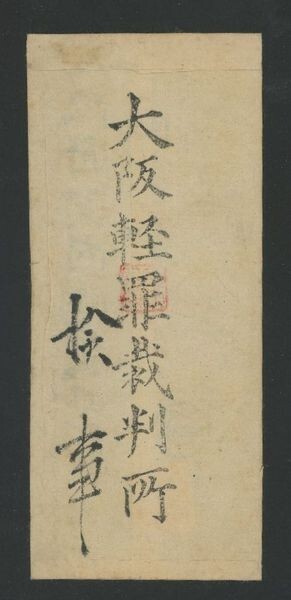 大阪軽罪裁判所
検事